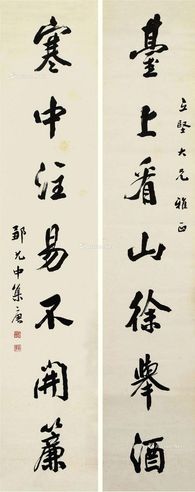 立堅大兄雅正
臺上看山徐舉酒
寒中注易不開簾
鄒允中集唐